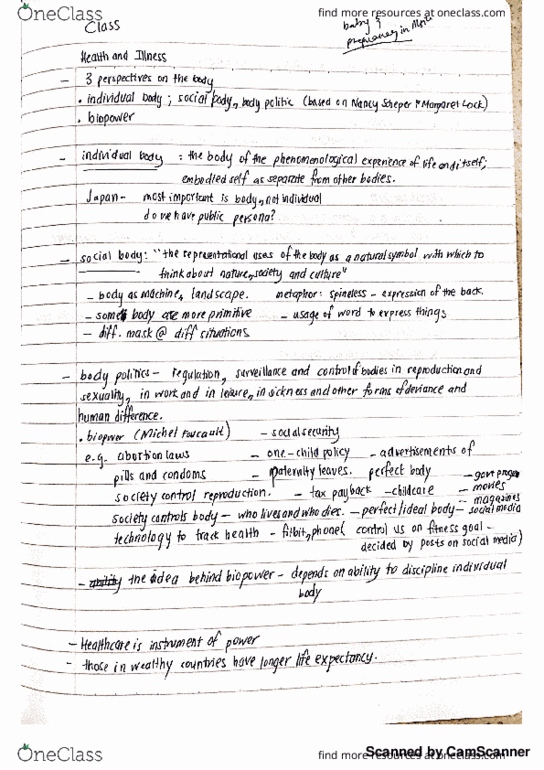 OneClass
find more resources at oneclass.com
Class
baby &
pregnancy in
Health and Illness
- 3 perspectives on the body
• individual body ; social body, body politic (based on Nancy Scheper & Margaret Lock)
• biopower
- individual body : the body of the phenomenological experience of life and itself;
embodied self as separate from other bodies.
Japan - most important is body, not individual
do we have public persona?
- social body: "the representational uses of the body as a natural symbol with which to
think about nature, society and culture"
- body as machine, landscape. metaphor: spineless - expression of the back.
- some body are more primitive - usage of word to express things
- diff. mask @ diff situations
- body politics - regulation, surveillance and control of bodies in reproduction and
sexuality, in work and in leisure, in sickness and other forms of deviance and
human difference.
• biopower (Michel Foucault) - social security
e.g. abortion laws - one-child policy - advertisements of
pills and condoms - paternity leaves. perfect body - govt
society control reproduction. - tax payback - childcare - movies
- magazines
society controls body - who lives and who dies. - perfect/ideal body - social media
technology to track health - fitbit, phone ( control us on fitness goal -
decided by posts on social media)
- the idea behind biopower - depends on ability to discipline individual
body
- Healthcare is instrument of power
- those in wealthy countries have longer life expectancy.
OneClass
find more resources at oneclass.com
Scanned by CamScanner